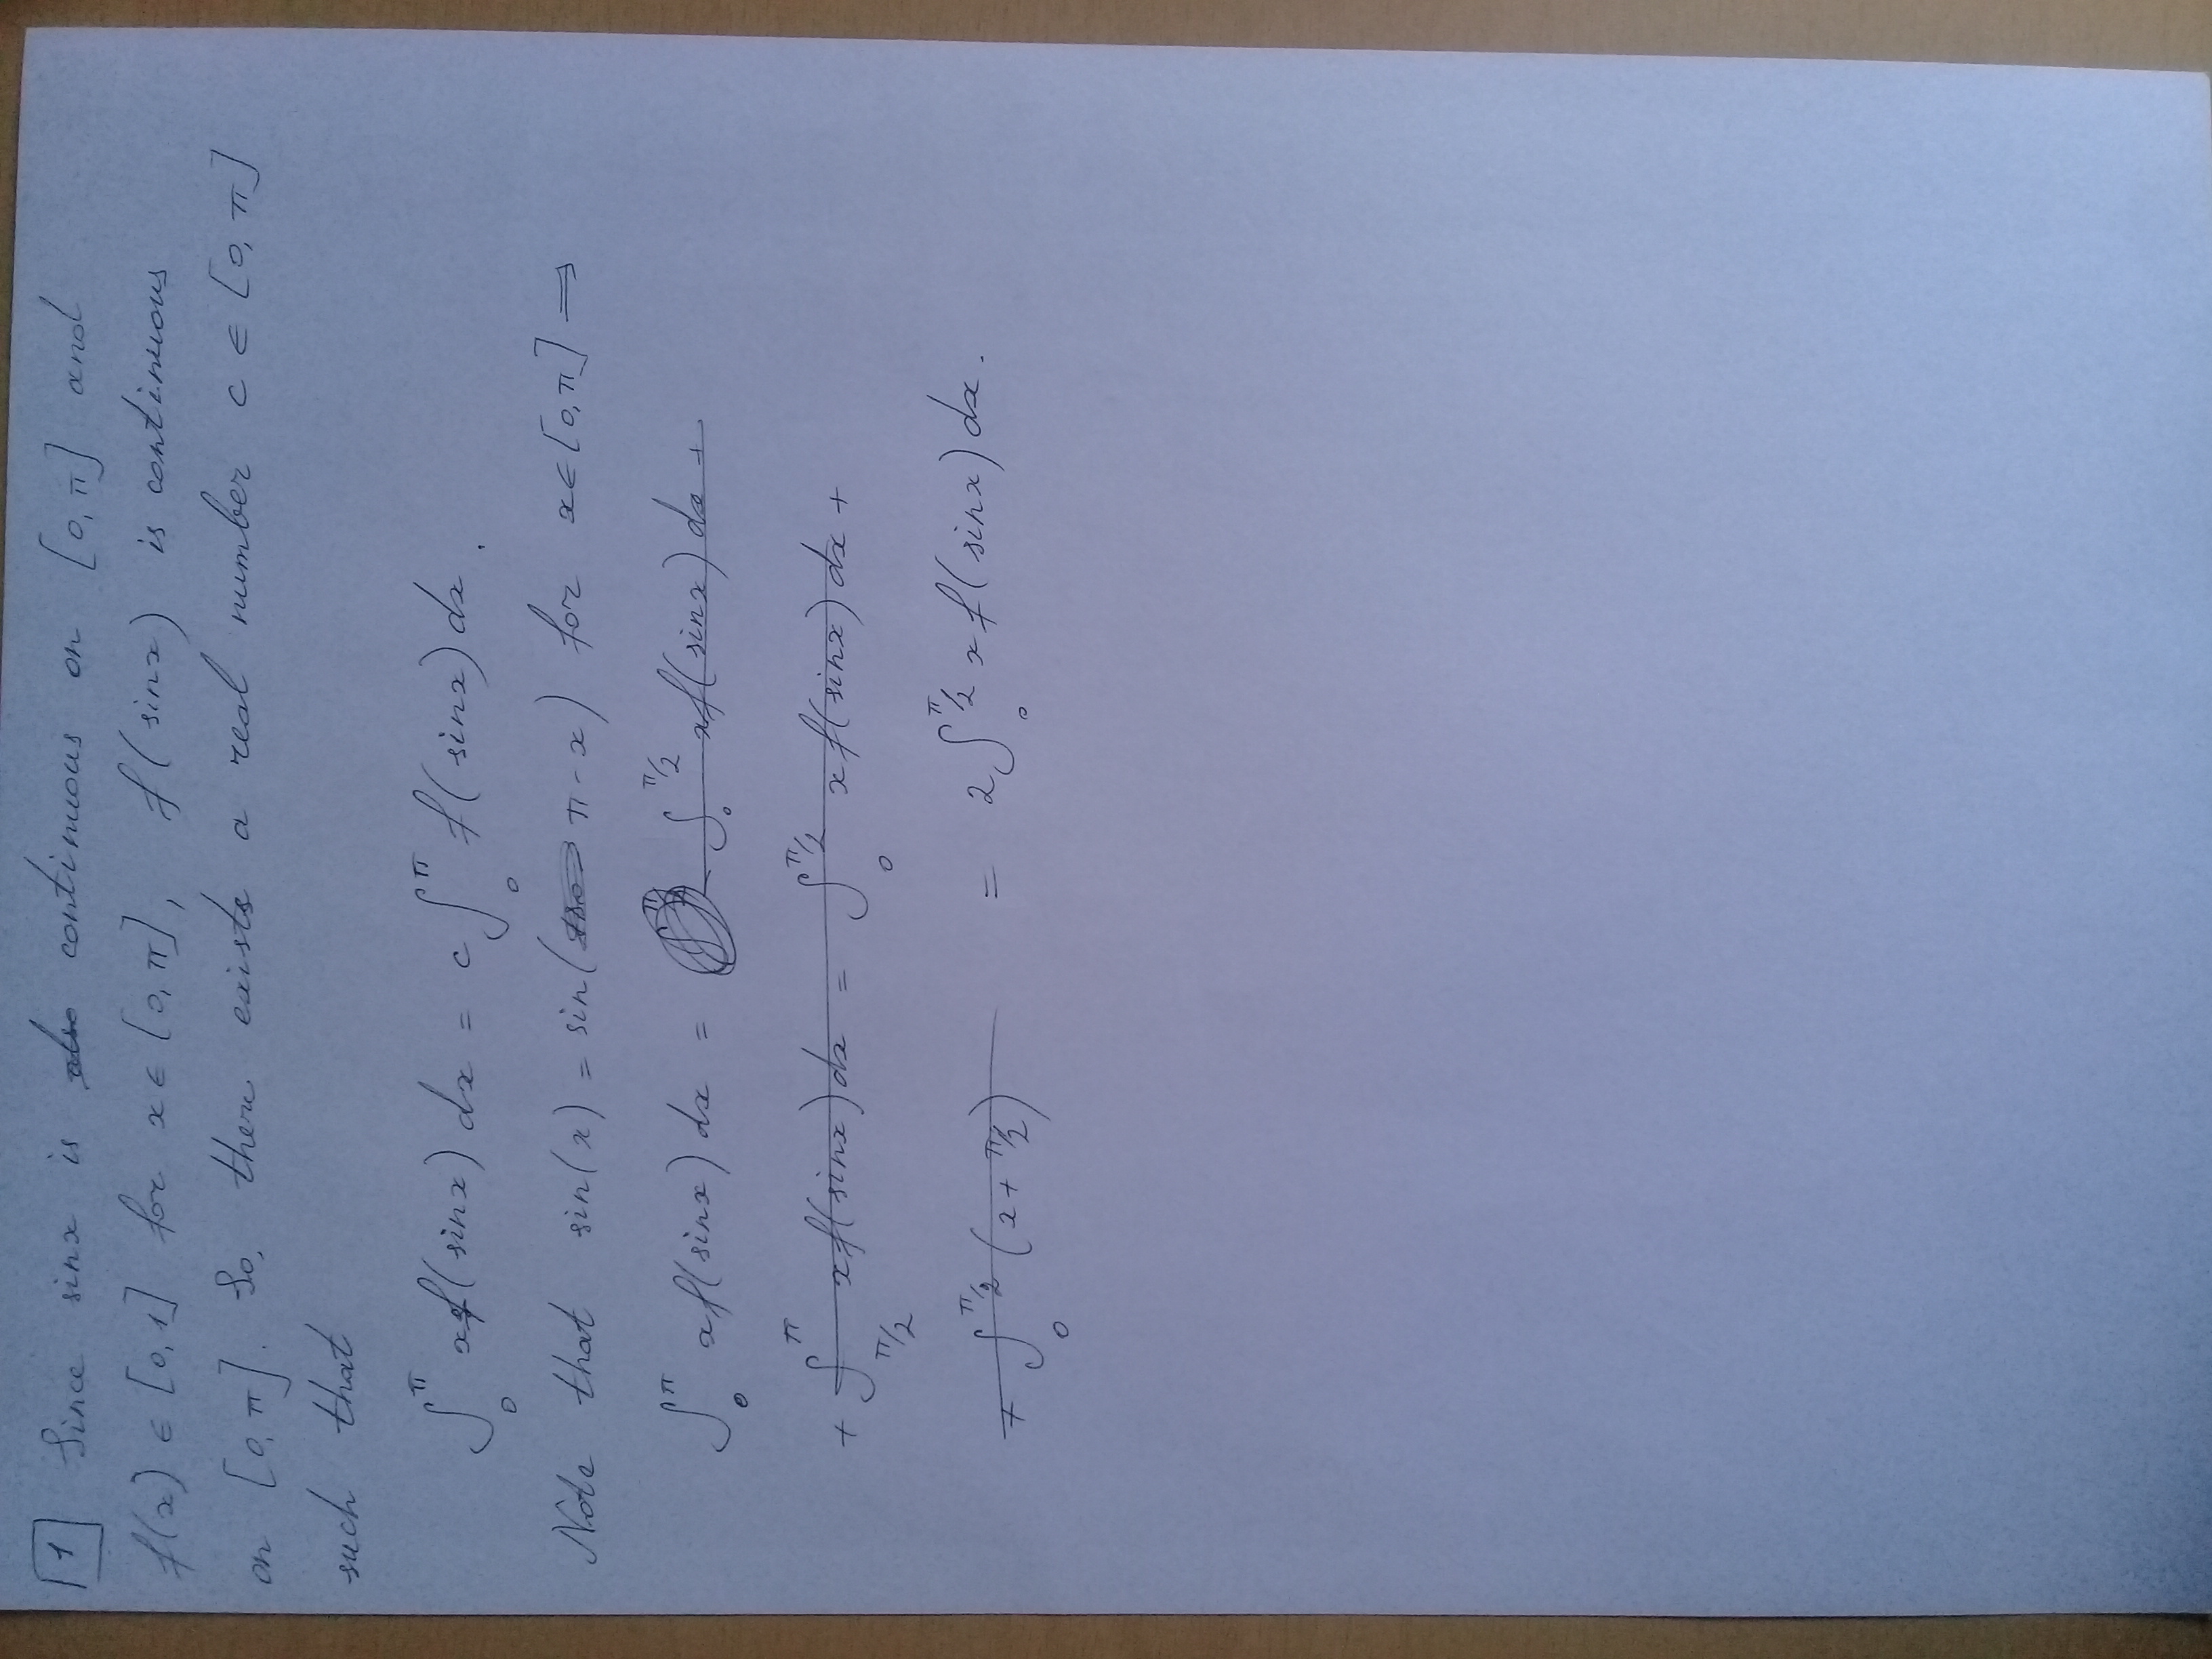 1 Since sinx is also continuous on [0, π] and
f(x) ∈ [0, 1] for x ∈ [0, π], f(sinx) is continuous
on [0, π]. So, there exists a real number c ∈ [0, π]
such that
∫₀^π xf(sinx) dx = c ∫₀^π f(sinx) dx.
Note that sin(x) = sin( π - x) for x ∈ [0, π] ⇒
∫₀^π xf(sinx) dx = ∫₀^{π/2} xf(sinx) dx +
+ ∫_{π/2}^π xf(sinx) dx = ∫₀^{π/2} xf(sinx) dx +
+ ∫₀^{π/2} (x + π/2) = 2 ∫₀^{π/2} xf(sinx) dx.